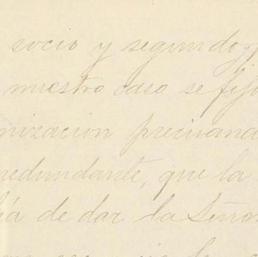 socio y segundo
nuestro caso se fij
nización precisand
redundante, que la
ía de dar la Seño